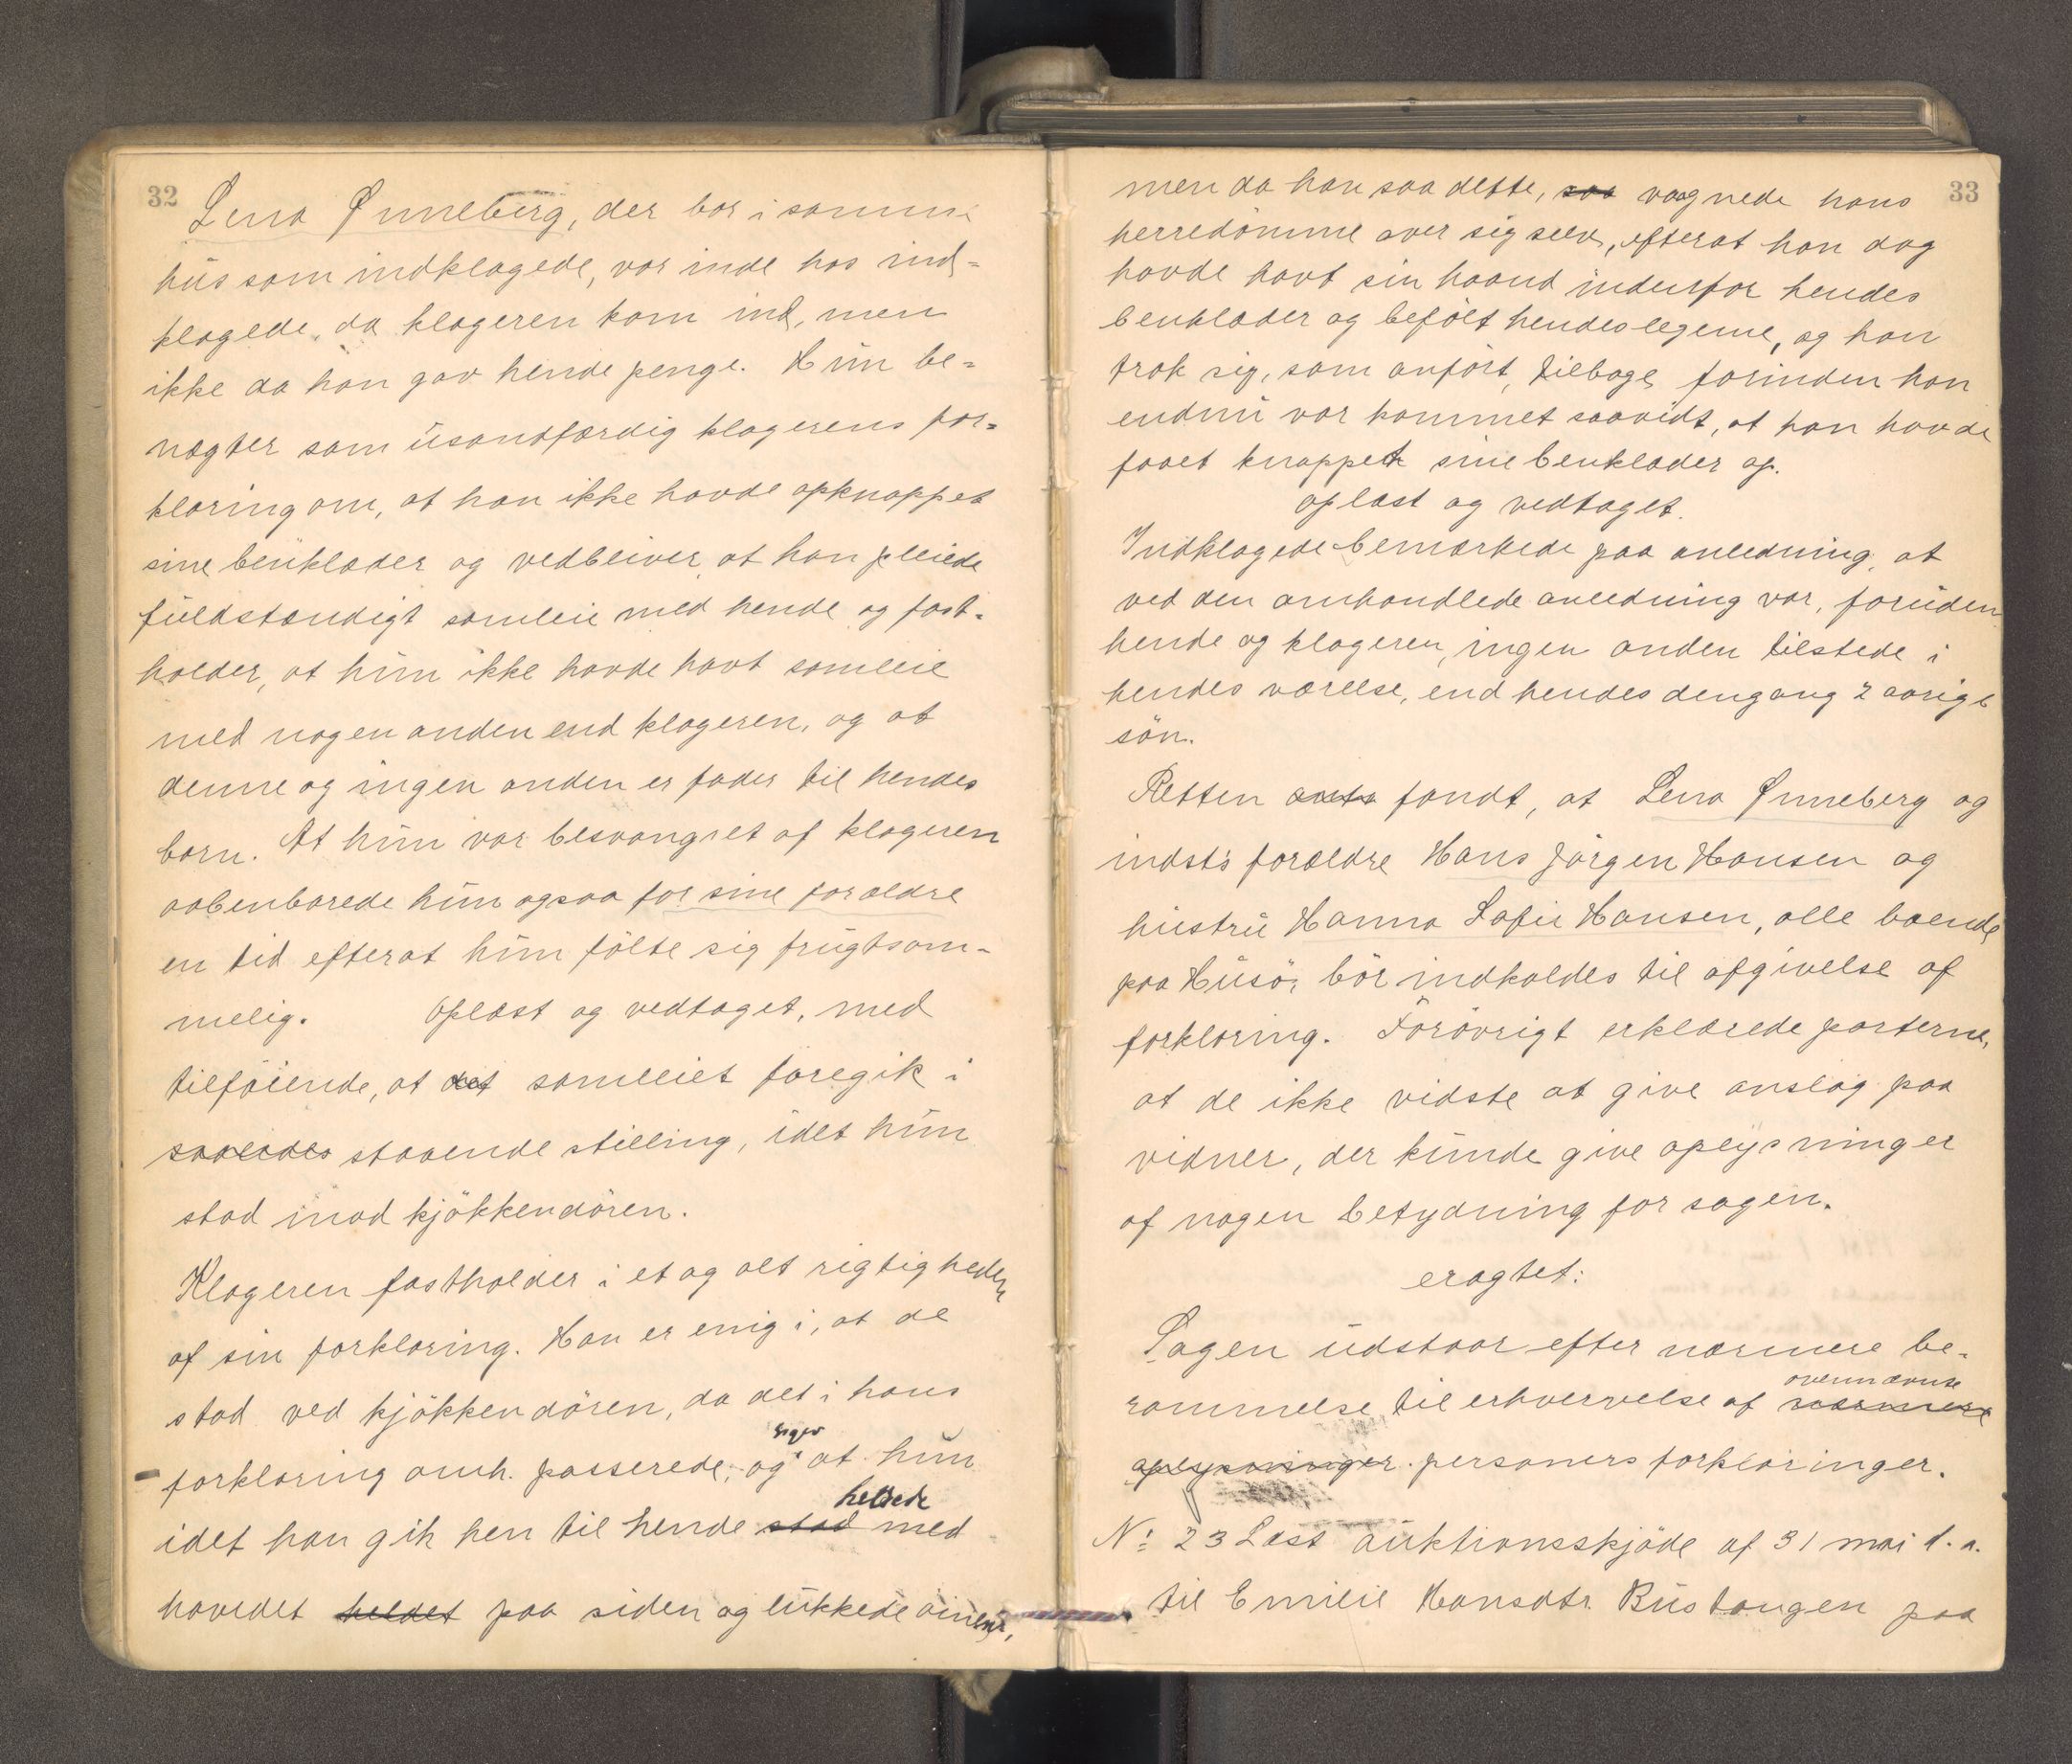 32
Lena Ønneberg, der bor i samme
hus som indklagede, var inde hos ind-
klagede, da klageren kom ind, men
ikke da han gav hende penge. Hun be-
nægter som usandfærdig klagerens for-
klaring om, at han ikke havde opknappet
sine benklæder og vedbliver, at han pleiede
fuldstændigt samleie med hende og fast-
holder, at hun ikke havde havt samleie
med nogen anden end klageren, og at
denne og ingen anden er fader til hendes
barn. At hun var besvangret af klageren
aabenbarede hun ogsaa for sine forældre
en tid efterat hun fölte sig frugtsom-
melig. Oplæst og vedtaget, med
tilföiende, at det samleiet foregik i
saaledes staaende stilling, idet hun
stod mod kjökkendören.
Klageren fastholder i et og alt rigtigheden
af sin forklaring. Han er enig i, at de
stod ved kjökkendören, da det i hans
forklaring omh. passerede, og siger at hun
idet han gik hen til hende stod heldede med
hovedet heldet paa siden og lukkede öinene,
33
men da han saa dette, saa vaagnede hans
herredömme over sig selv, efterat han dog
havde havt sin haand indenfor hendes
benklæder og befölt hendes legeme, og han
trak sig, som anfört, tilbage forinden han
endnu var kommet saavidt, at han havde
faaet knappet sine benklæder op.
oplæst og vedtaget.
Indklagede bemærkede paa anledning, at
ved den omhandlede anledning var, foruden
hende og klageren, ingen anden tilstede i
hendes værelse, end hendes dengang 2 aarige
sön.
Retten fandt, at Lena Ønneberg og
indst's forældre Hans Jörgen Hansen og
hustru Hanna Sofie Hansen, alle boende
paa Husö, bör indkaldes til afgivelse af
forklaring. Forövrigt erklærede parterne,
at de ikke vidste at give anslag paa
vidner, der kunde give oplysninger
af nogen betydning for sagen.
eragtet:
Sagen udstaar efter nærmere be-
rammelse til erhvervelse af nærmere ovennævnte
oplysninger personers forklaringer.
No 23 Læst auktionsskjöde af 31 mai d. a.
til Emilie Hansdtr. Bustangen paa